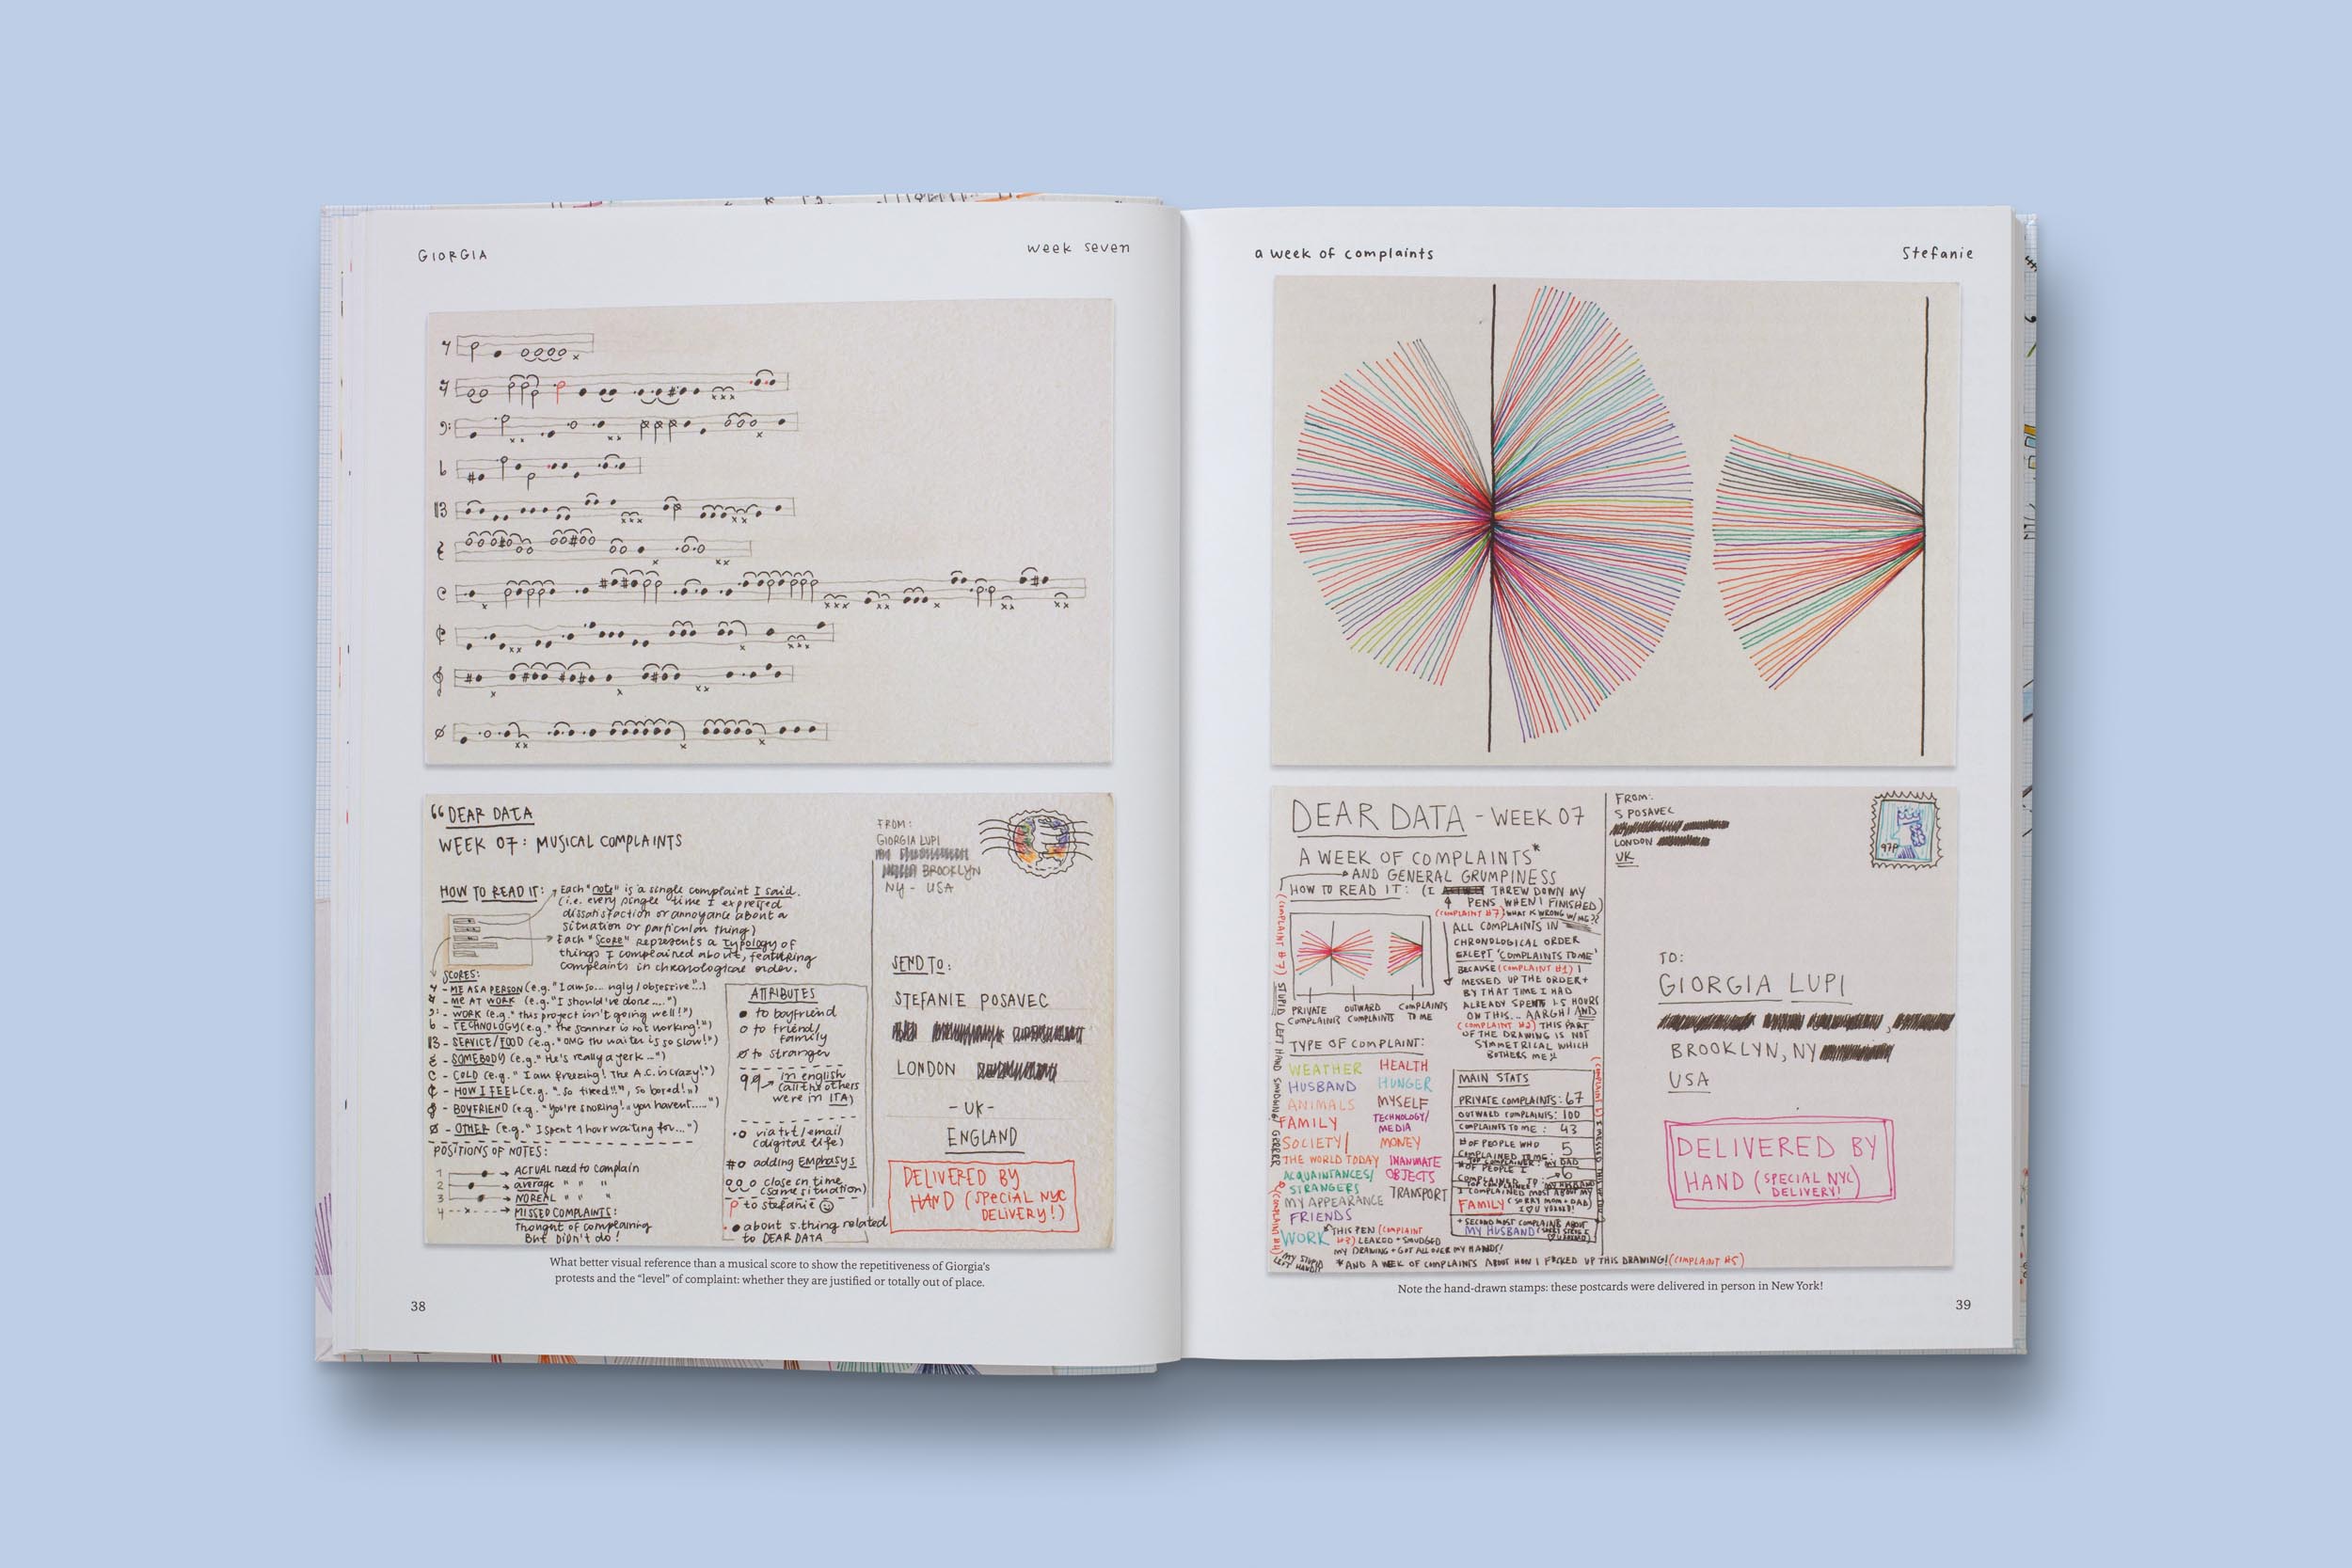 GIORGIA
week seven
"DEAR DATA
WEEK 07: MUSICAL COMPLAINTS
HOW TO READ IT:
Each "note" is a single complaint I said.
(i.e. every single time I expressed
dissatisfaction or annoyance about a
situation or particular thing)
Each "score" represents a typology of
things I complained about, featuring
complaints in chronological order.
SCORES:
- ME AS A PERSON (e.g. "I am so... ugly / obsessive"..)
- ME AT WORK (e.g. "I should've done....")
- WORK (e.g. "this project isn't going well!")
- TECHNOLOGY (e.g. "the scanner is not working!")
- SERVICE/FOOD (e.g. "OMG the waiter is so slow!")
- SOMEBODY (e.g. "He's really a jerk...")
- COLD (e.g. "I am freezing! The A.C. is crazy!")
- HOW I FEEL (e.g. "so tired!!", so bored!")
- BOYFRIEND (e.g. "you're snoring!, you haven't.....")
- OTHER (e.g. "I spent 1 hour waiting for...")
POSITIONS OF NOTES:
1 → ACTUAL need to complain
2 → average " " "
3 → NOREAL " " "
4 --x--→ MISSED COMPLAINTS:
thought of complaining
But DIDN'T do!
ATTRIBUTES
to boyfriend
to friend/
family
to stranger
in english
(all the others
were in ITA)
via txt/email
(digital life)
adding EMphasys
close on time
(same situation)
to stefanie
about s.thing related
to DEAR DATA
FROM:
GIORGIA LUPI
BROOKLYN
NY - USA
SEND TO:
STEFANIE POSAVEC
LONDON
- UK -
ENGLAND
DELIVERED BY
HAND (SPECIAL NYC
DELIVERY!)
What better visual reference than a musical score to show the repetitiveness of Giorgia's
protests and the "level" of complaint: whether they are justified or totally out of place.
38
a week of complaints
Stefanie
DEAR DATA - WEEK 07
A WEEK OF COMPLAINTS*
AND GENERAL GRUMPINESS
HOW TO READ IT: (I THREW DOWN MY
PENS WHEN I FINISHED)
(COMPLAINT #7) WHAT IS WRONG W/ME??
ALL COMPLAINTS IN
CHRONOLOGICAL ORDER
EXCEPT 'COMPLAINTS TO ME'
BECAUSE (COMPLAINT #1) I
MESSED UP THE ORDER +
BY THAT TIME I HAD
ALREADY SPENT 1.5 HOURS
ON THIS... AARGH! AND
(COMPLAINT #2) THIS PART
OF THE DRAWING IS NOT
SYMMETRICAL WHICH
BOTHERS ME!
PRIVATE COMPLAINTS
OUTWARD COMPLAINTS
COMPLAINTS TO ME
TYPE OF COMPLAINT:
WEATHER
HUSBAND
ANIMALS
FAMILY
SOCIETY/
THE WORLD TODAY
ACQUAINTANCES/
STRANGERS
MY APPEARANCE
FRIENDS
WORK
HEALTH
HUNGER
MYSELF
TECHNOLOGY/
MEDIA
MONEY
INANIMATE
OBJECTS
TRANSPORT
MAIN STATS
PRIVATE COMPLAINTS: 67
OUTWARD COMPLAINTS: 100
COMPLAINTS TO ME: 43
# OF PEOPLE WHO
COMPLAINED TO ME: 5
TOP COMPLAINER: MY DAD
# OF PEOPLE I
COMPLAINED TO: 6
I COMPLAINED MOST ABOUT MY
FAMILY (SORRY MOM + DAD)
+ SECOND MOST COMPLAINTS ABOUT
MY HUSBAND
*THIS PEN (COMPLAINT
#3) LEAKED + SMUDGED
MY DRAWING + GOT ALL OVER MY HANDS!
*AND A WEEK OF COMPLAINTS ABOUT HOW I F*CKED UP THIS DRAWING! (COMPLAINT #5)
FROM:
S POSAVEC
LONDON
UK
97P
TO:
GIORGIA LUPI
BROOKLYN, NY
USA
DELIVERED BY
HAND (SPECIAL NYC
DELIVERY!)
Note the hand-drawn stamps: these postcards were delivered in person in New York!
39